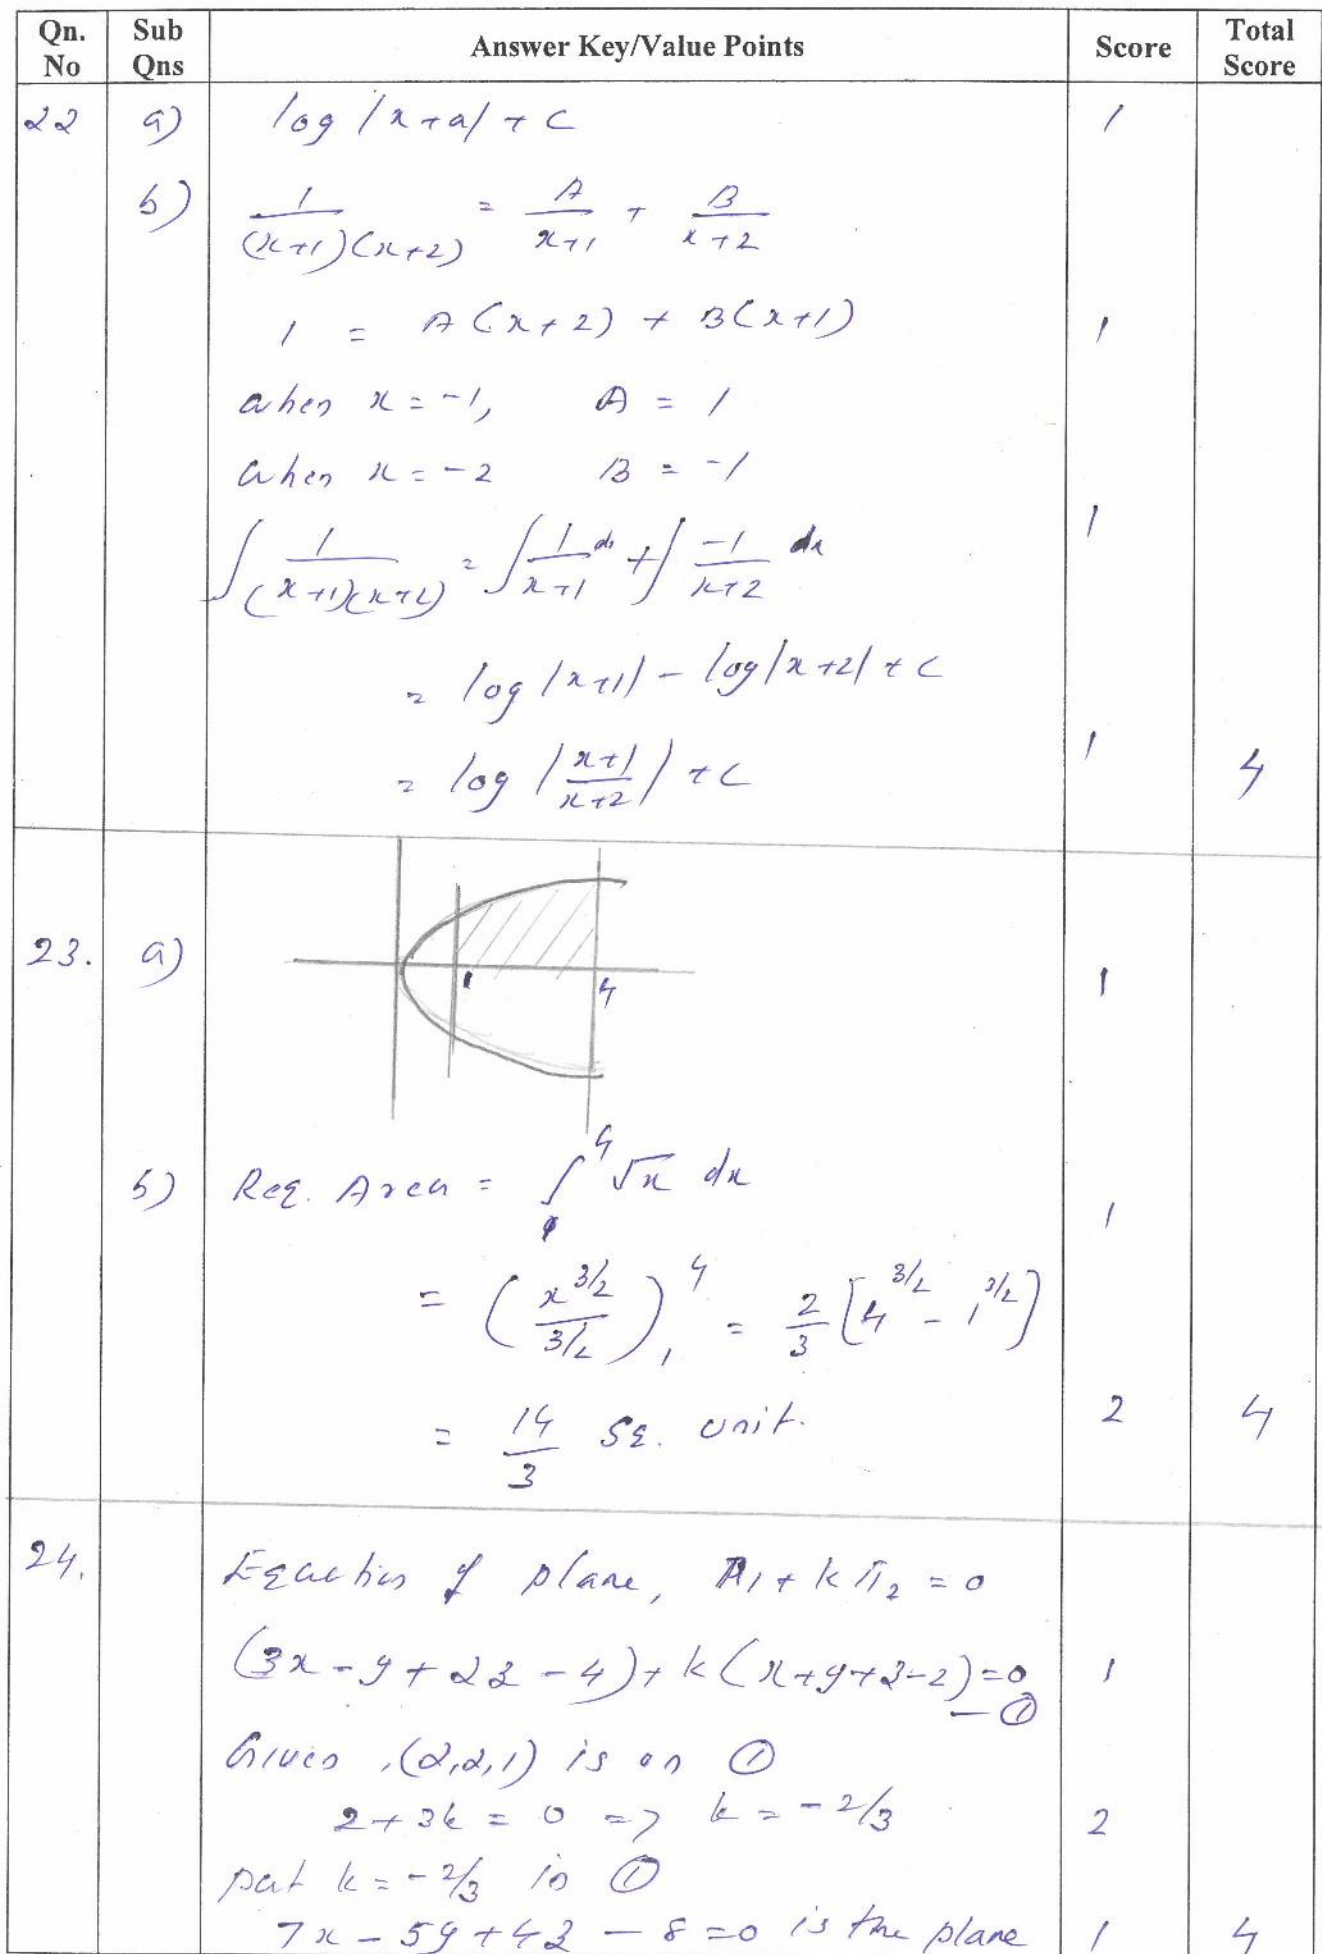 Qn. No | Sub Qns | Answer Key/Value Points | Score | Total Score
22 a) log |x+a| + c 1
b) 1/((x+1)(x+2)) = A/(x+1) + B/(x+2)
1 = A(x+2) + B(x+1) 1
when x = -1, A = 1
when x = -2 B = -1
∫ 1/((x+1)(x+2)) = ∫ 1/(x+1) dx + ∫ -1/(x+2) dx 1
= log |x+1| - log |x+2| + c
= log |(x+1)/(x+2)| + c 1 4
23. a) 1 4 1
b) Req. Area = ∫₁⁴ √x dx 1
= (x^(3/2)/(3/2))₁⁴ = 2/3 [4^(3/2) - 1^(3/2)]
= 14/3 sq. unit. 2 4
24. Equation of plane, π₁ + k π₂ = 0
(3x - y + 2z - 4) + k(x+y+z-2) = 0 1
— ①
Given, (2,2,1) is on ①
2 + 3k = 0 => k = -2/3 2
put k = -2/3 in ①
7x - 5y + 4z - 8 = 0 is the plane 1 4